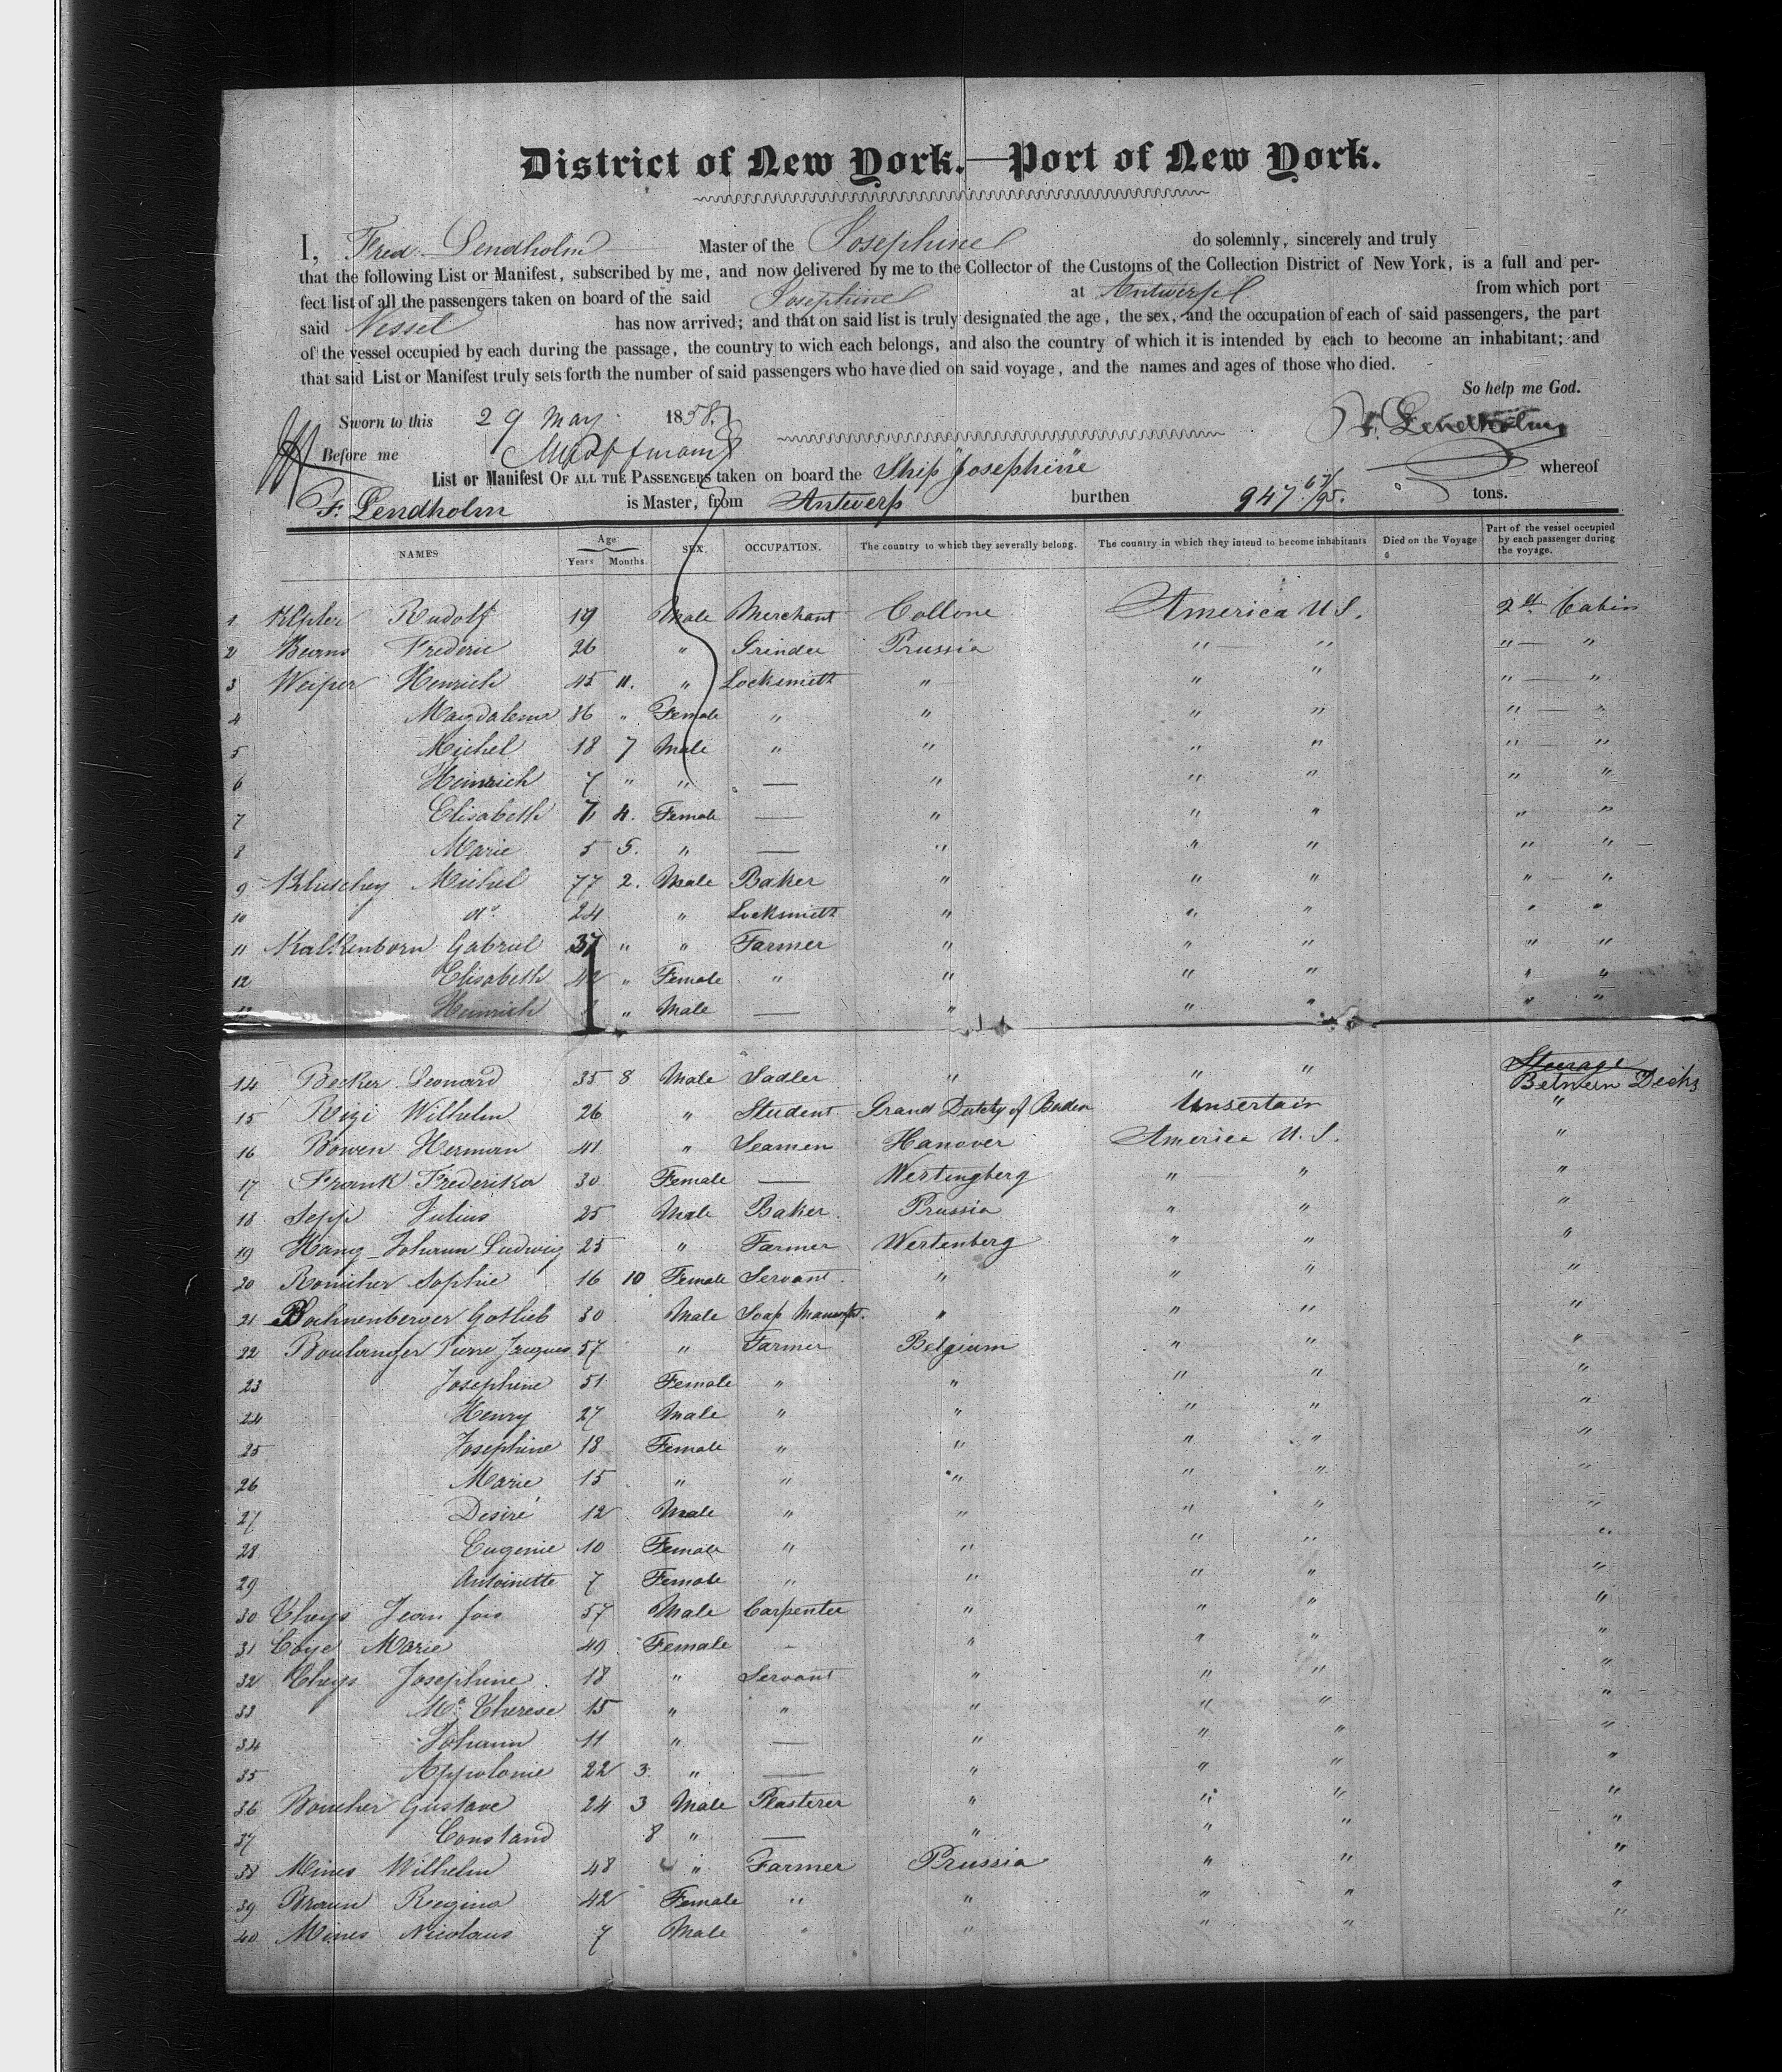 District of New York.—Port of New York.
I, Fred. Lendholm Master of the Josephine do solemnly, sincerely and truly
that the following List or Manifest, subscribed by me, and now delivered by me to the Collector of the Customs of the Collection District of New York, is a full and per-
fect list of all the passengers taken on board of the said Josephine at Antwerp from which port
said Vessel has now arrived; and that on said list is truly designated the age, the sex, and the occupation of each of said passengers, the part
of the vessel occupied by each during the passage, the country to wich each belongs, and also the country of which it is intended by each to become an inhabitant; and
that said List or Manifest truly sets forth the number of said passengers who have died on said voyage, and the names and ages of those who died.
So help me God.
Sworn to this 29 May 1858. F. Lendholm
Before me
List or Manifest OF ALL THE PASSENGERS taken on board the Ship "Josephine whereof
F. Lendholm is Master, from Antwerp burthen 947 /95. tons.
NAMES Age Years Months. SEX. OCCUPATION. The country to which they severally belong. The country in which they intend to become inhabitants Died on the Voyage Part of the vessel occupied by each passenger during the voyage.
1 Rudolf 19 Male Merchant Collone America U S. 2d Cabin
2 Frederic 26 " Grinder Prussia " " " — "
3 Weiper Henrich 45 11. " Locksmith " " " " — "
4 Magdalena 36 " Female " " " " " — "
5 Michel 18 7 Male " " " " " — "
6 Heinrich 7 " " — " " " " "
7 Elisabeth 7 4. Female — " " " " "
8 Marie 5 5. " — " " " " "
9 Michel 77 2. Male Baker " " " " — "
10 do 24 " Locksmith " " " " "
11 Kalkenborn Gabriel 37 " " Farmer " " " " "
12 Elisabeth 42 " Female " " " " " "
13 Heinrich " Male — " " " " "
14 Becker Leonard 35 8 Male Sadler " " " Steerage Between Decks
15 Rizi Wilhelm 26 " Student Grand Dutchy of Baden Unsertain "
16 Bowen Herman 41 " Seamen Hanover America U. S. "
17 Frank Frederika 30 Female — Wertingberg " " "
18 Sepp Julius 25 Male Baker. Prussia " " "
19 Hang Johann Ludwig 25 " Farmer Wertenberg " " "
20 Sophie 16 10 Female Servant " " " "
21 Bachnenberger Gotlieb 30 Male Soap Manufct. " " " "
22 Boulanger Pierre Jacques 57 " Farmer Belgium " " "
23 Josephine 51 Female " " " " "
24 Henry 27 Male " " " " "
25 Josephine 18 Female " " " " "
26 Marie 15 " " " " " "
27 Desiré 12 Male " " " " "
28 Eugenie 10 Female " " " " "
29 Antoinette 7 Female " " " " "
30 Theys Jean fois 57 Male Carpenter " " " "
31 Coye Marie 49 Female - " " " "
32 Theys Josephine. 18 " Servant " " " "
33 Me. Therese 15 " " " " " "
34 Johann 11 " — " " " "
35 Appolonie 22 3. " — " " " "
36 Boucher Gustave 24 3 Male Plasterer " " " "
37 Constand 8 " — " " " "
38 Mines Wilhelm 48 " Farmer Prussia " " "
39 Braun Regina 42 Female " " " " "
40 Mines Nicolaus 7 Male " " " " "